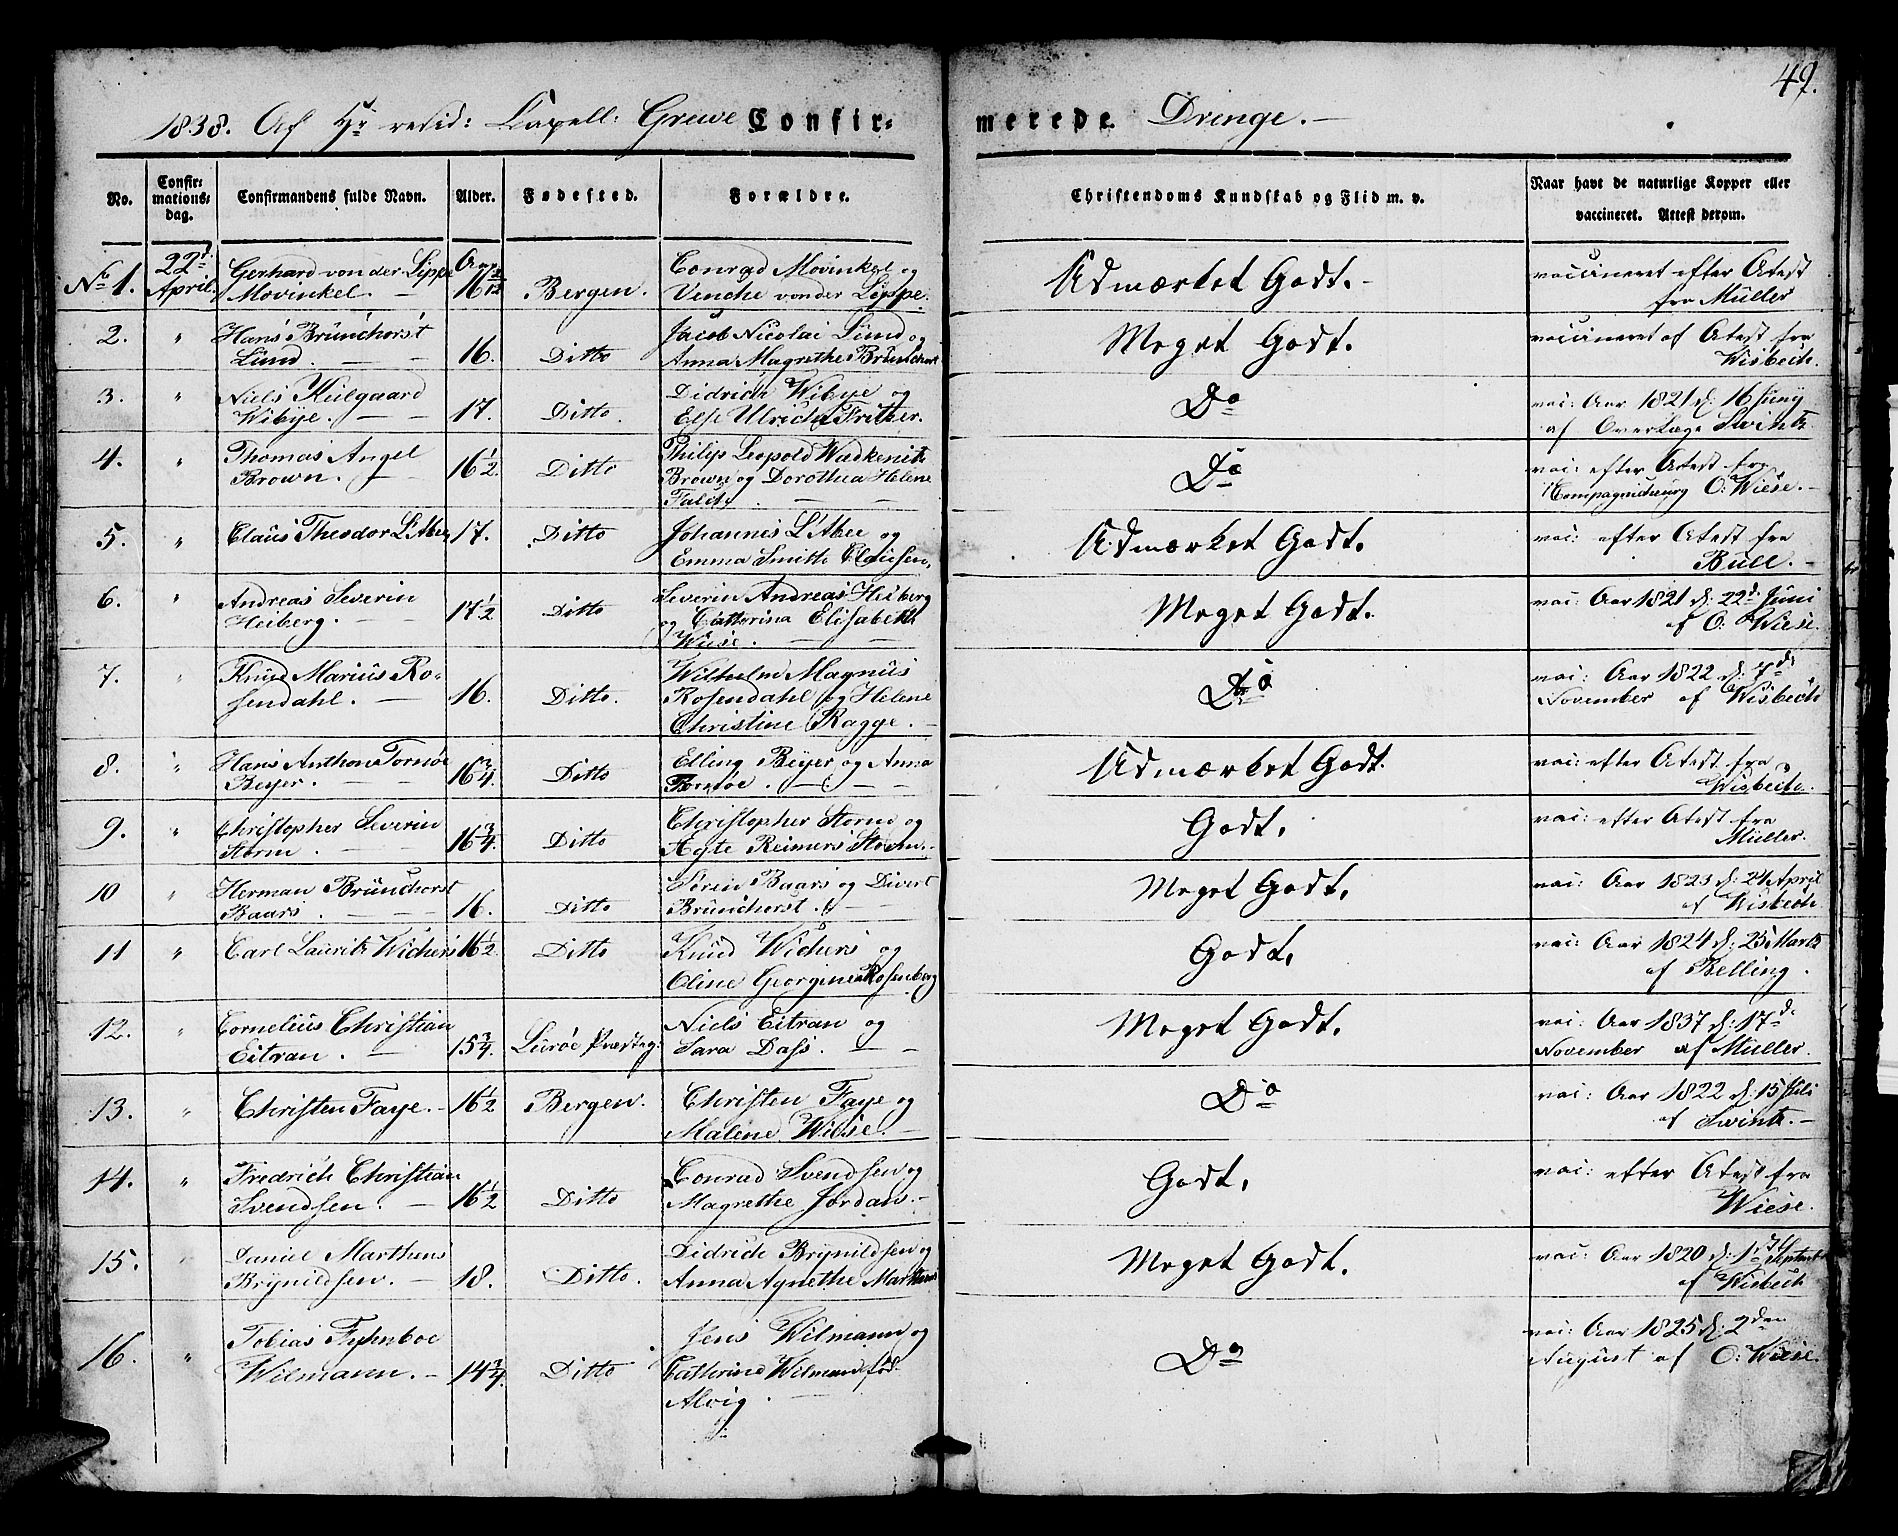 49.
1838. Af Hr resid: Capell: Greve Confir= merede Drenge.
No. Confir=mations=dag. Confirmandens fulde Navn. Alder. Fødested. Forældre. Christendoms Kundskab og Flid m. v. Naar havt de naturlige Kopper eller vaccineret. Attest derom.
No 1. 22d April. Gerhard von der Lippe Aar Conrad Movinkel og Udmærket Godt. vaccineret efter Atest
Movinkel. 16 Bergen. Venche von der Lippe. fra Müller
2. " Hans Brünchorst Jacob Nicolai Lund og Meget Godt. vaccineret af Atest fra
Lund. 16. Ditto Anna Magrethe Brünchorst Wisbech.
3. " Niels Kulgaard Didrich Wibye og Do vac: Aar 1821 d: 16 Juny
Wibye. 17. Ditto. Else Ulricha Fritzer. af Overlæge Swintz
4. " Thomas Angel 16 1/2 Ditto Philip Leopold Wadkenitz Do vac: efter Atest fra
Brown. Brown og Dorothea Helene Compagnichirurg O: Wiese.
Falch.
5. " Claus Theodor L'Abee 17. Ditto Johannes L'Abee og Udmærket Godt. vac: efter Atest fra
Emma Smith Clausen, Bull.
6. " Andreas Severin 17 1/2 Ditto Severin Andreas Heiberg Meget Godt. vac: Aar 1821 d: 22d Juni
Heiberg. og Catherina Elisabeth af O: Wiese.
Wiese.
7. " Knud Marius Ro= Wilhelm Magnus Do vac: Aar 1822 d: 7de
sendahl. 16. Ditto. Rosendahl og Helene November af Wisbech
Christine Ragge.
8. " Hans Anthon Tornøe 16 3/4. Ditto Elling Beyer og Anna Udmærket Godt. vac: efter Atest fra
Beyer. Tornøe. Wisbech.
9. " Christopher Severin 16 3/4. Ditto Christopher Storm og Godt. vac: efter Atest fra
Storm. Agte Reimers Storm. Müller.
10 " Herman Brünchorst Søren Baars og Divert Meget Godt. vac: Aar 1823 d: 24 April
Baars. 16. Ditto Brünchorst. af Wisbech
11 " Carl Lauritz Wichers 16 1/2 Ditto Knud Wichers og Godt. vac: Aar 1824 d: 25 Marts
Oline Georgine Rosenberg af Belling.
12. " Cornelius Christian Niels Eitran og Meget Godt. vac: Aar 1837 d: 17de
Eitran. 15 3/4. Lurøe Præsteg: Sara Dass. November af Müller.
13. " Christen Faye. 16 1/2 Bergen. Christen Faye og Do vac: Aar 1822 d: 15 Juli
Malene Wiese. af Swintz.
14. " Fredrich Christian Conrad Svendsen og Godt. vac: efter Atest fra
Svendsen. 16 1/2 Ditto Magrethe Jordan. Wiese.
15. " Daniel Marthens Didrich Brynildsen og Meget Godt. vac: Aar 1820 d: 1ste September
Brynildsen. 18. Ditto. Anna Agnethe Martens af Wisbech
16. " Tobias Fyhnboe Jens Wilmann og Do vac: Aar 1825 d: 2den
Wilmann. 14 3/4. Ditto Catherine Wilmann fød. August af O: Wiese.
Alvig.